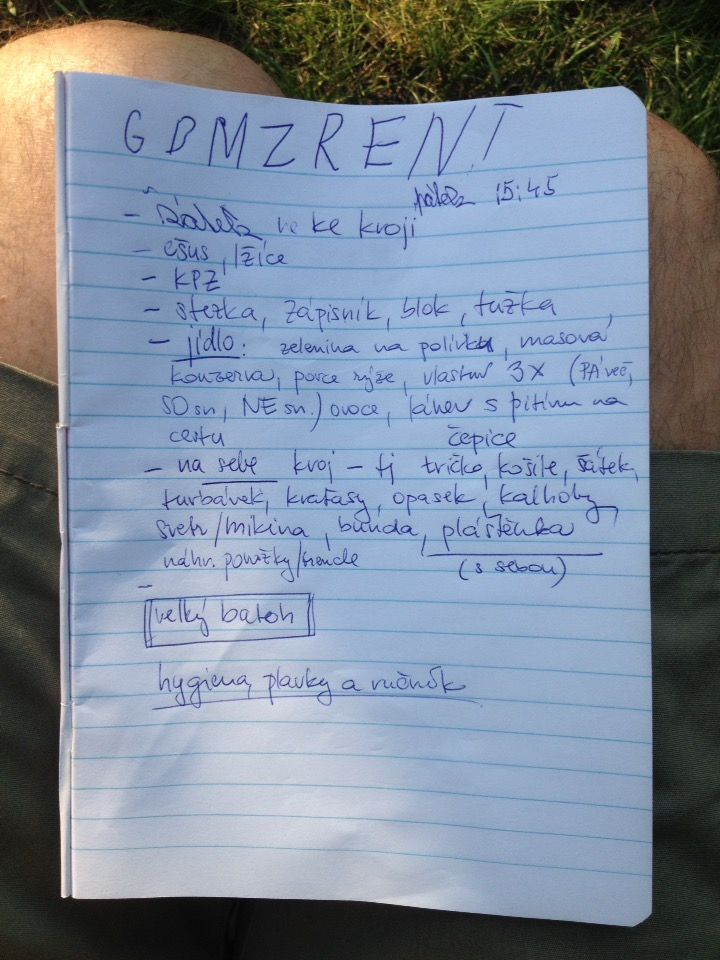 GBMZRENT
pátek 15:45
- ve ke kroji
- ešus, lžíce
- KPZ
- stezka, zápisník, blok, tužka
- jídlo: zelenina na polívku, masová
konzerva, porce rýže, vlastní 3x (PÁ več,
SO sn, NE sn.) ovoce, láhev s pitím na
cestu
čepice
- na sebe kroj - tj tričko, košile, šátek,
turbánek, kraťasy, opasek, kalhoty,
svetr/mikina, bunda, pláštěnka
náhr. ponožky/trencle
(s sebou)
-
velký batoh
hygiena, plavky a ručník